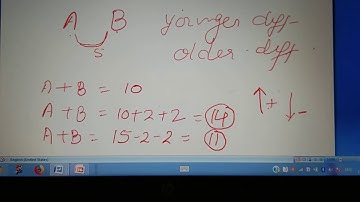 A B
5
younger diff
older diff.
A + B = 10
A + B = 10 + 2 + 2 = 14
A + B = 15 - 2 - 2 = 11
↑+ ↓-